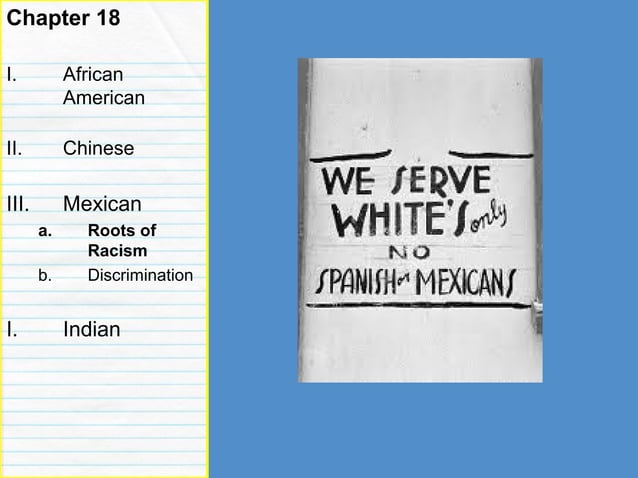 Chapter 18
I. African
American
II. Chinese
III. Mexican
a. Roots of
Racism
b. Discrimination
I. Indian
WE SERVE
WHITE'S only
NO
SPANISH or MEXICANS